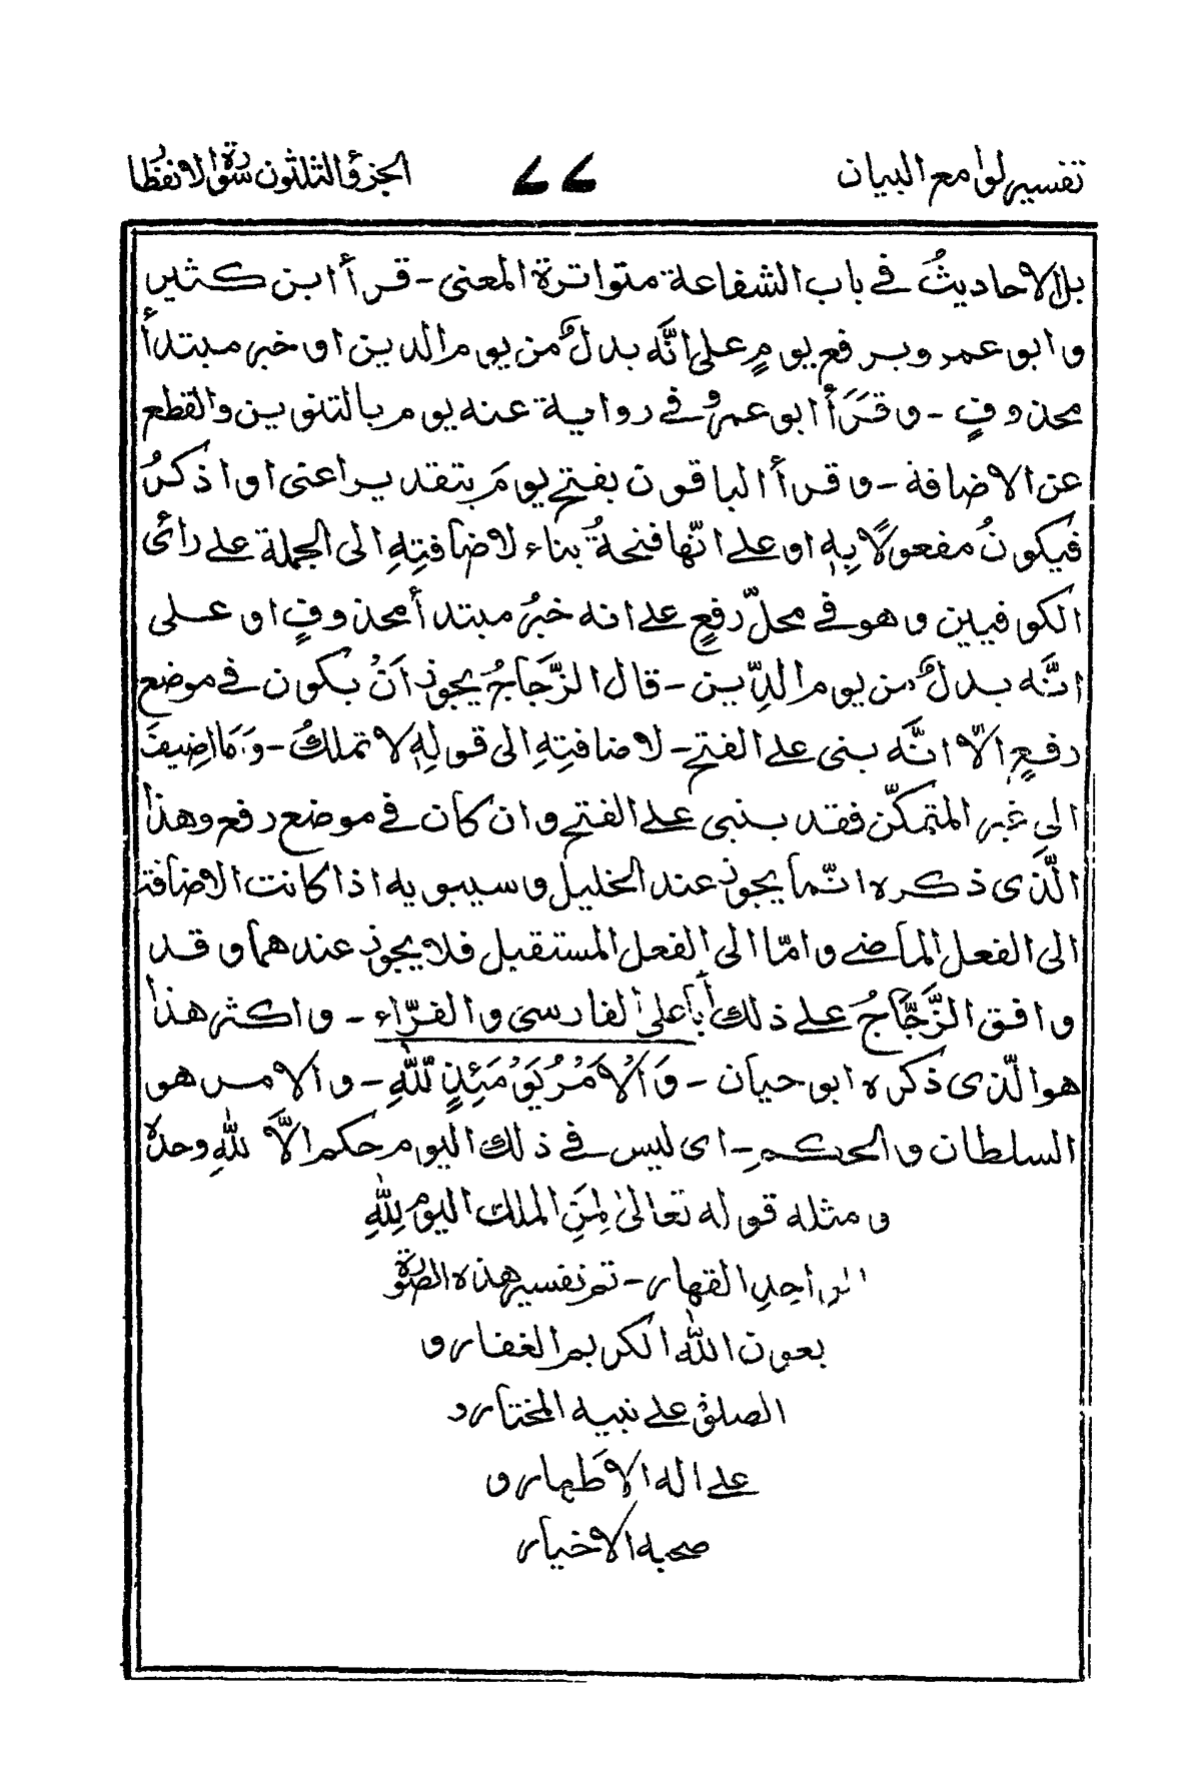 تفسير لوامع البيان ٧٧ الجزؤ الثلثون سورة الانفطار
بل الاحاديثُ في باب الشفاعة متواترة المعنى - قرأ ابن كثير
و ابو عمر وبرفع يومٍ على انَّه بدلٌ من يوم الدين او خبر مبتدأ
محذوفٍ - و قَرَأَ ابو عمروٍ في رواية عنه يوم بالتنوين والقطع
عن الاضافة - و قرأ الباقون بفتح يومَ بتقدير اعنى او اذكرُ
فيكونُ مفعولًا بِه او على انّها فتحةُ بناء لاضافتِهِ الى الجملة على رائى
الكوفيين و هو في محلّ رفعٍ على انه خبرُ مبتدأ محذوفٍ او على
انَّه بدلٌ من يوم الدِّين - قال الزَّجاجُ يجوز أنْ يكون في موضع
رفعٍ الّا انَّه بنى على الفتح - لاضافتِهِ الى قولِهِ لا تملكُ - وَمَا اضِيفَ
الى غير المتمكّن فقد يبنى على الفتح و ان كان في موضع رفع وهذا
الَّذى ذكره انّما يجوز عند الخليل و سيبويه اذا كانت الاضافة
الى الفعل الماضى و امّا الى الفعل المستقبل فلا يجوز عندهما و قد
وافق الزَّجَّاجُ على ذلك أبا على الفارسى و الفرّاء - و اكثر هذا
هو الّذى ذكره ابو حيان - وَالْاَمْرُ يَوْمَئِذٍ لِّلّٰهِ - و الامر هو
السلطان و الحكم - اى ليس في ذلك اليوم حكم الاَّ للهِ وحده
و مثله قوله تعالىٰ لِمَنِ الملك اليوم لِلّٰهِ
الواحِدِ القهار - تم تفسير هذه الصورة
بعون اللّٰه الكريم الغفار و
الصلوٰة على نبيه المختار و
على اله الاطهار و
صحبه الاخيار